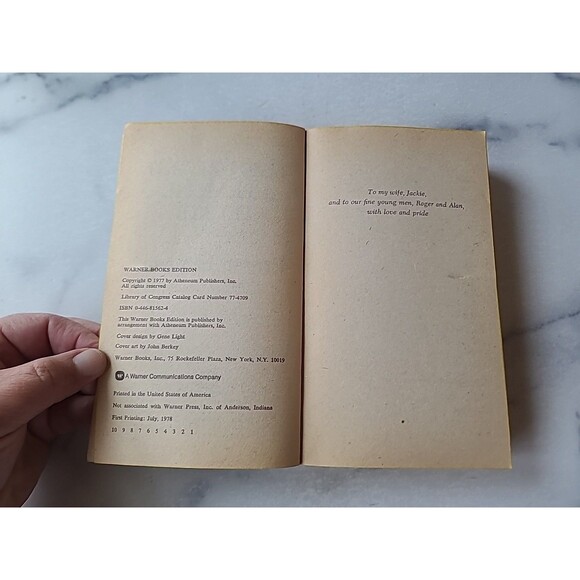 WARNER BOOKS EDITION
Copyright © 1977 by Atheneum Publishers, Inc.
All rights reserved
Library of Congress Catalog Card Number 77-4709
ISBN 0-446-81562-4
This Warner Books Edition is published by
arrangement with Atheneum Publishers, Inc.
Cover design by Gene Light
Cover art by John Berkey
Warner Books, Inc., 75 Rockefeller Plaza, New York, N.Y. 10019
A Warner Communications Company
Printed in the United States of America
Not associated with Warner Press, Inc. of Anderson, Indiana
First Printing: July, 1978
10 9 8 7 6 5 4 3 2 1
To my wife, Jackie,
and to our fine young men, Roger and Alan,
with love and pride